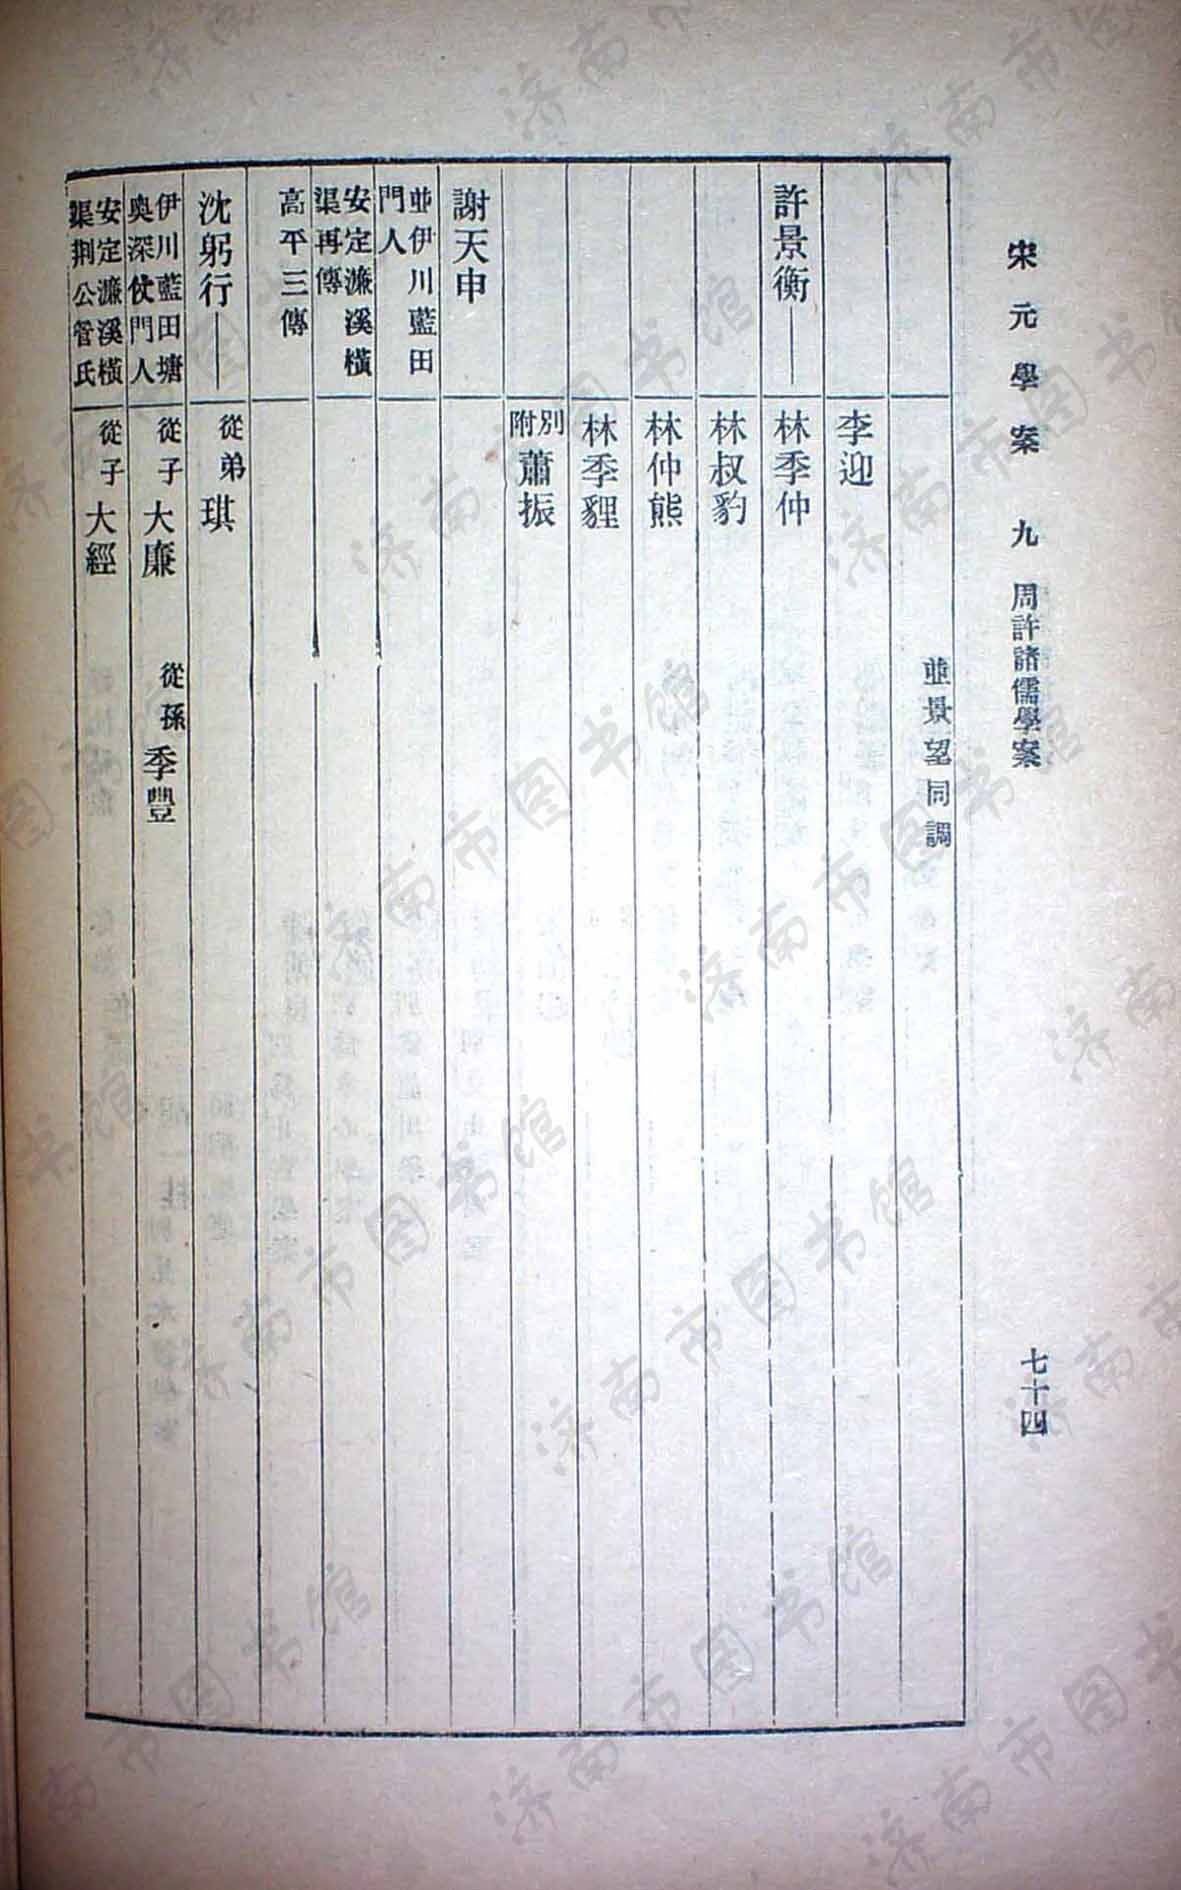 宋元學案 九 周許諸儒學案 七十四
並景望同調
李迎
許景衡—— 林季仲
林叔豹
林仲熊
林季貍
別附 蕭振
謝天申
並伊川藍田
門人
安定濂溪橫
渠再傳
高平三傳
沈躬行—— 從弟 琪
伊川藍田塘
奧深仗門人
從子 大廉 從孫 季豐
安定濂溪橫
渠荆公管氏
從子 大經
济南市图书馆